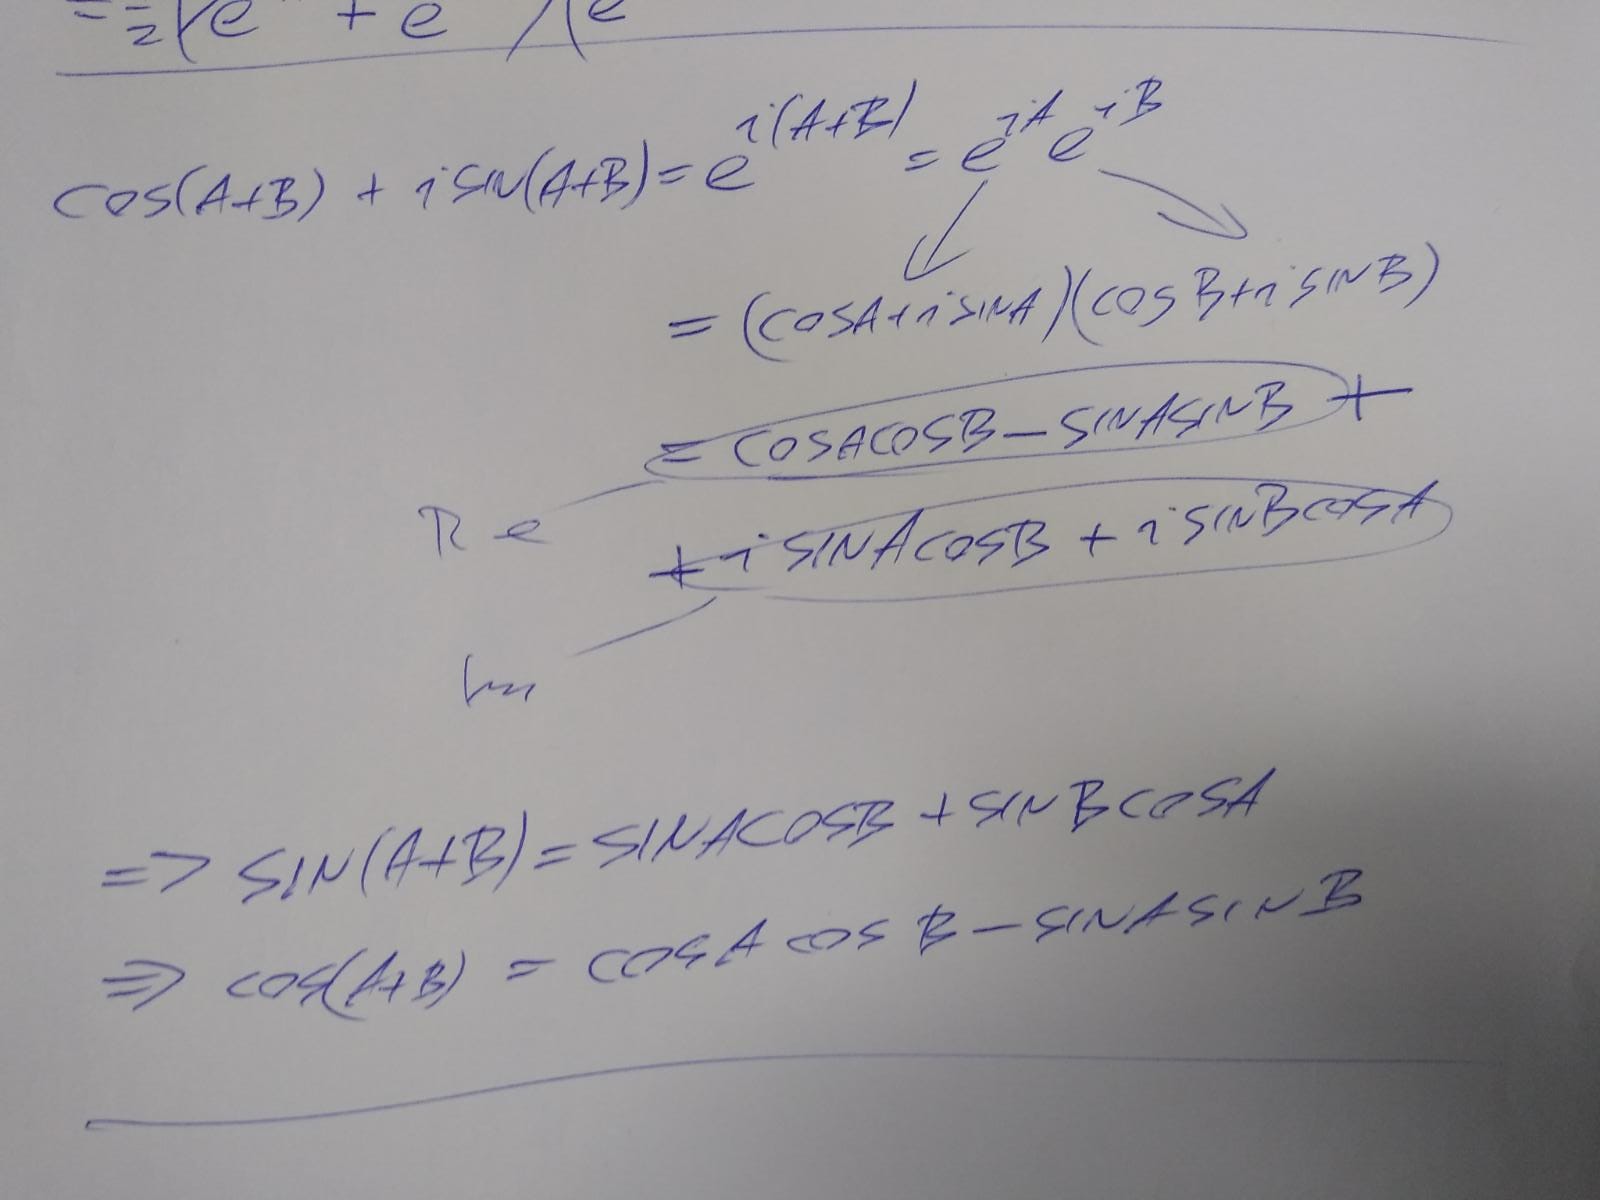 = 1/2 (e + e )(e
cos(A+B) + i sin(A+B) = e^{i(A+B)} = e^{iA} e^{iB}
= (cosA + i sinA)(cosB + i sinB)
= cosAcosB - sinAsinB +
Re
+ i sinAcosB + i sinBcosA
Im
=> sin(A+B) = sinAcosB + sinBcosA
=> cos(A+B) = cosA cosB - sinAsinB